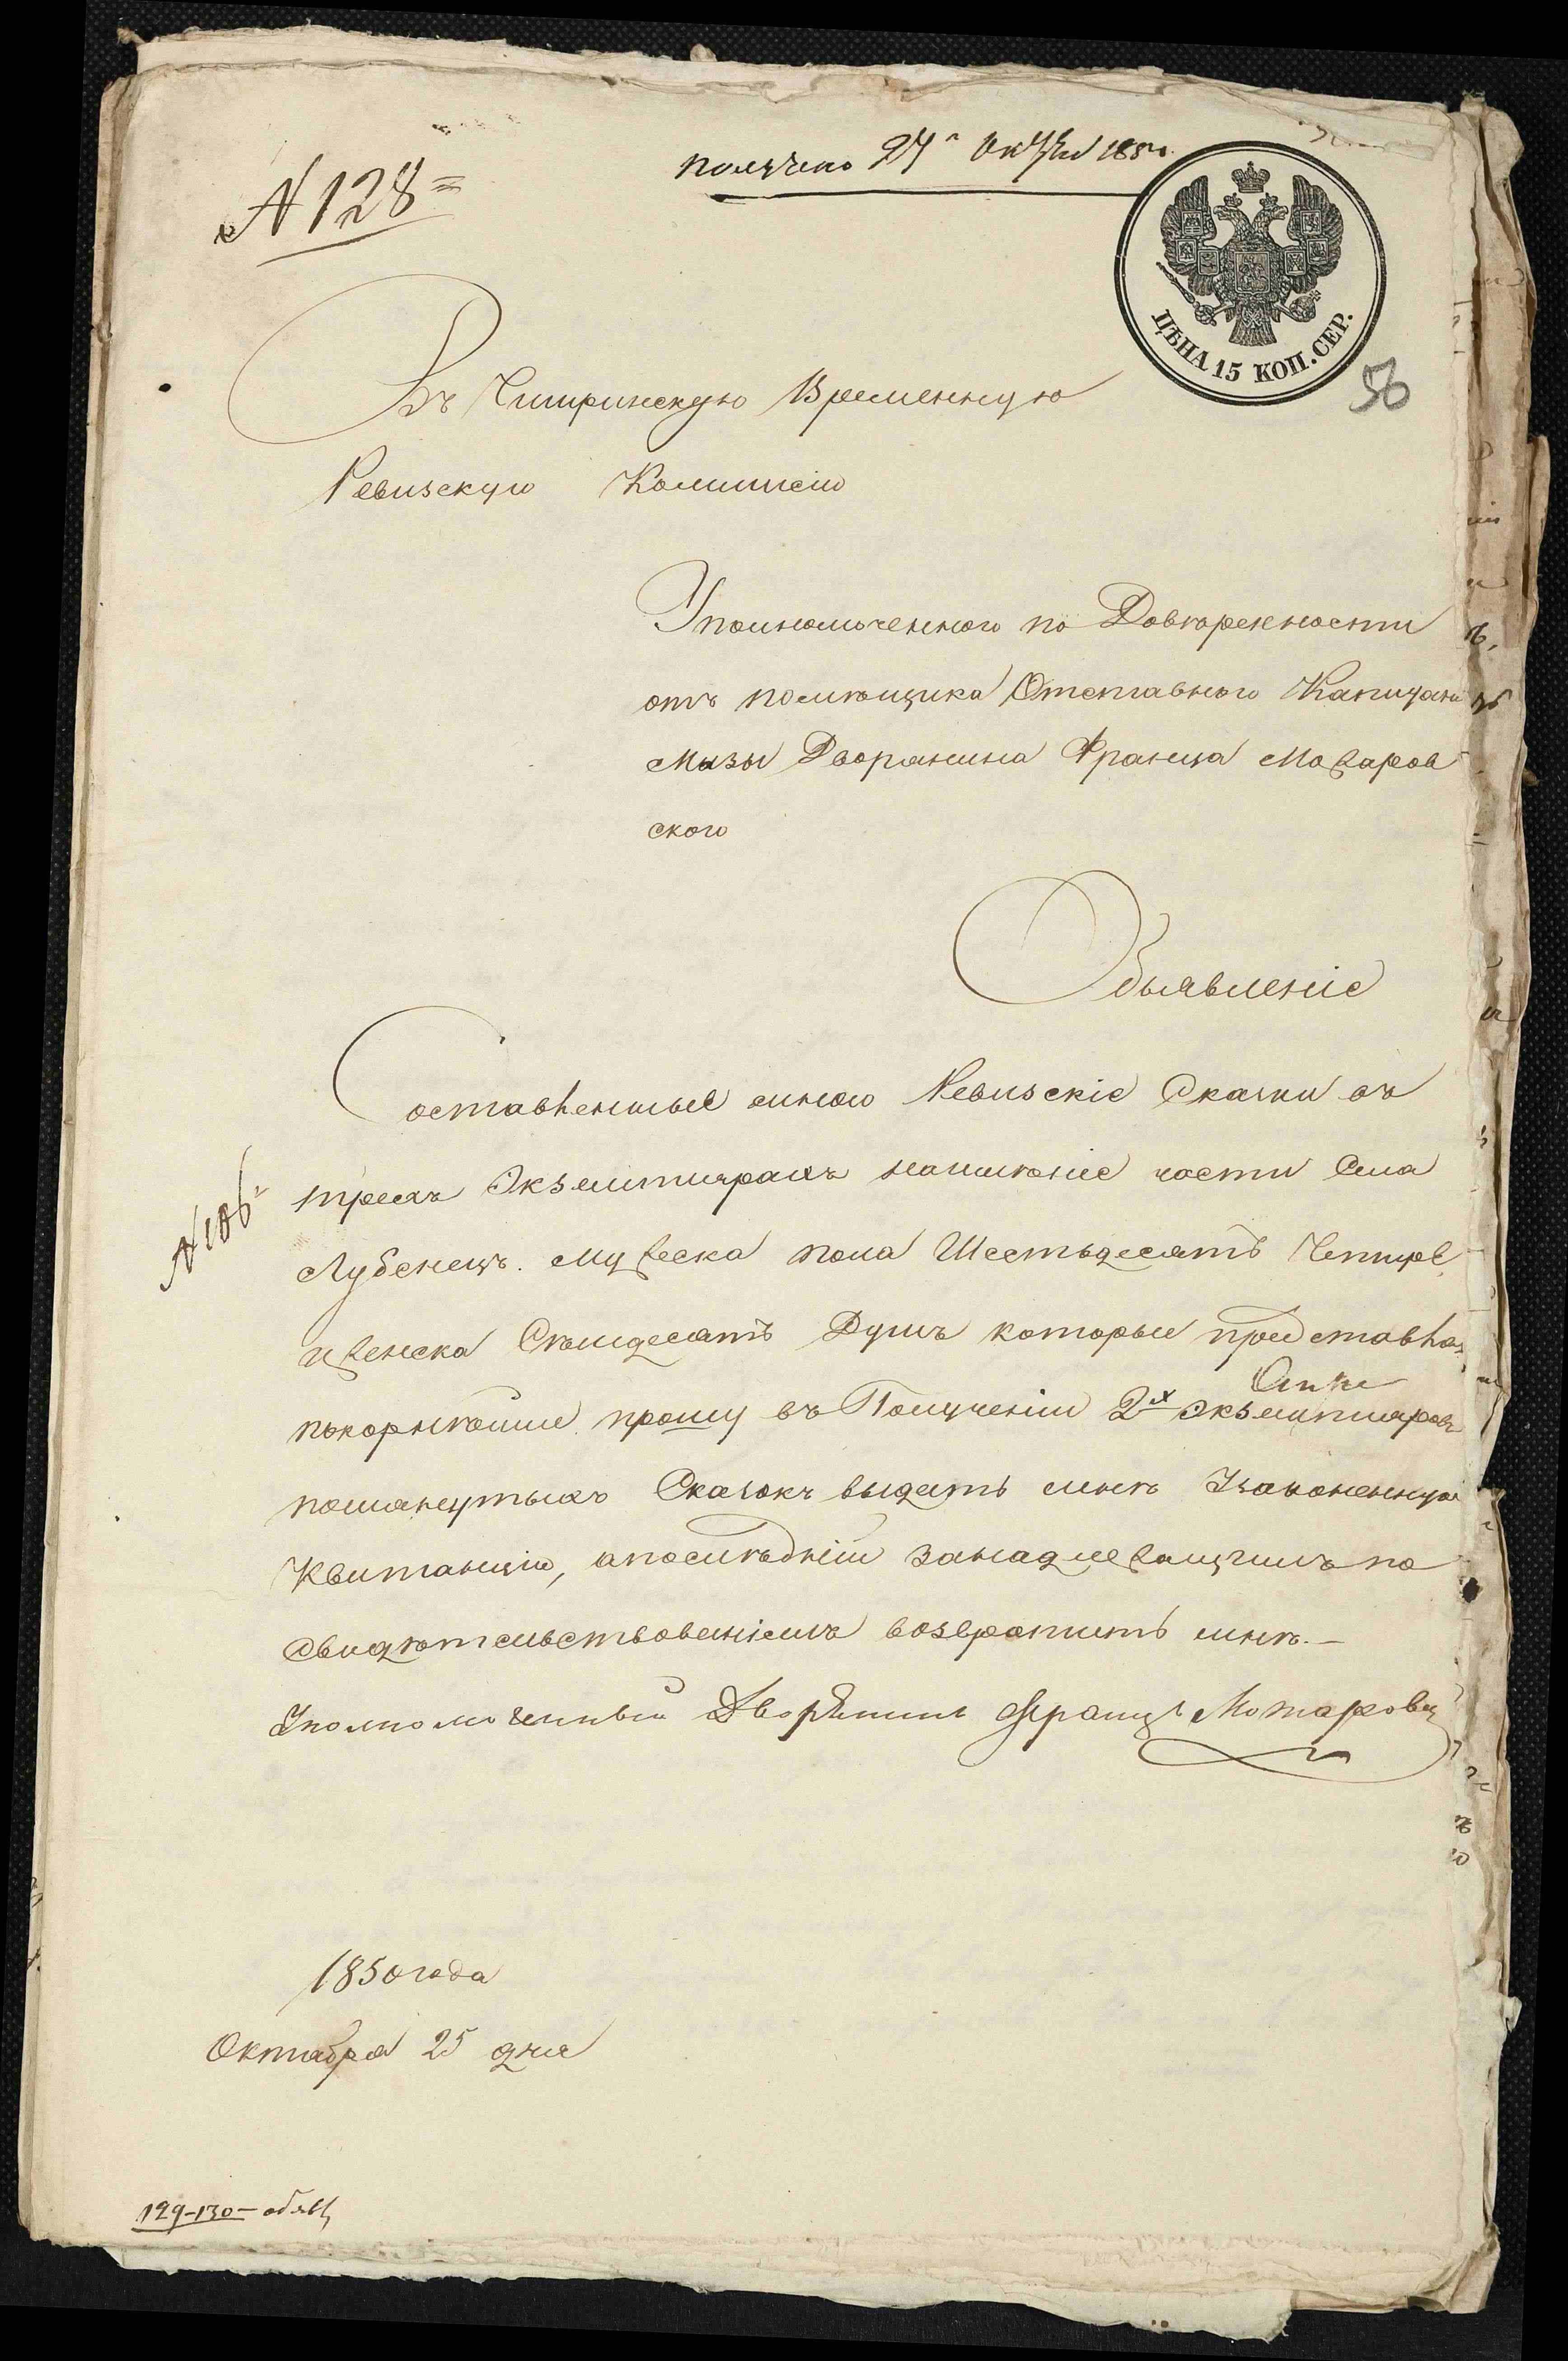 № 128
получено 27 Окт 1850
ЦѢНА 15 КОП. СЕР.
56
Въ Чигиринскую Временную
Ревизскую Коммисію
Уполномоченного по Довѣренности
отъ помѣщика Отставного Капитана
Мызы Дворянина ФранцаМожаров
ского
Объявленіе
Составленные мною Ревизскіе Сказки въ
трехъ Экземплярахъ наимѣніе части Села
Лубенецъ. мужеска пола Шестьдесятъ Четыре
иженска Сѣмдесятъ Душъ которые представляя,
покорнѣйше прошу въ Полученіи 2х Экземпляровъ
помянутыхъ Сказокъ выдать мнѣ Узаконенную
Квитанцію, апослѣдній занадлежащимъ по
свидѣтельствованіемъ возвратить мнѣ.—
Уполномоченный Дворянинъ Францъ Можаровс
№ 106
1850 года
Октября 25 дня
129-130-объяв